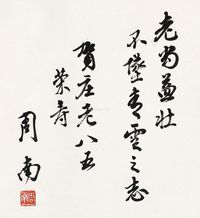 老当益壮
不坠青云之志
贺庄老八五
荣寿
周南